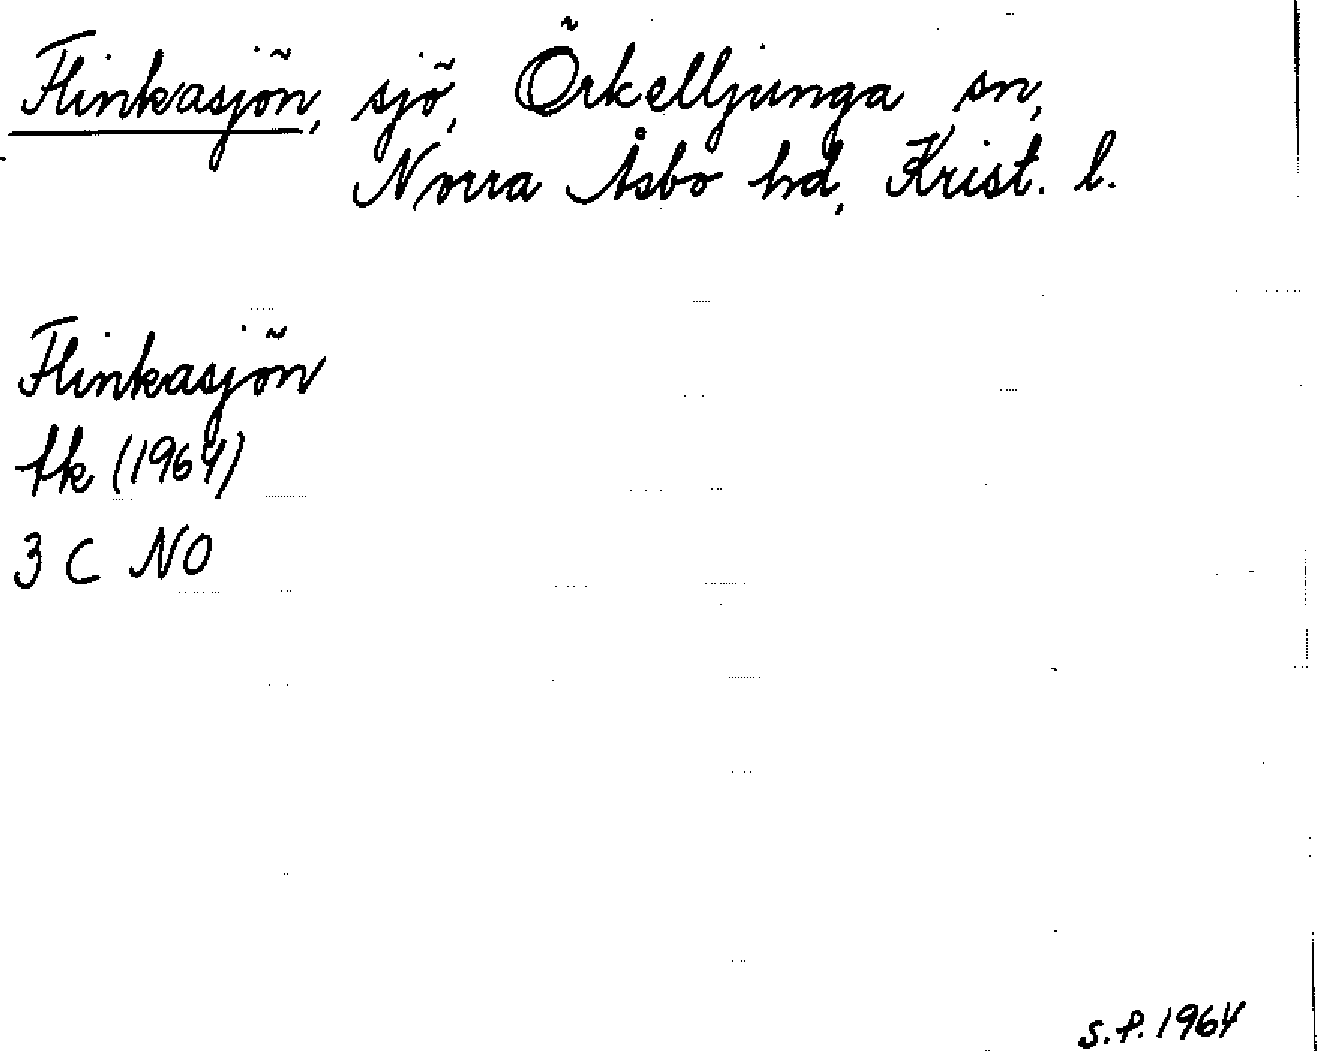 Flinkasjön, sjö, Örkelljunga sn,
Norra Åsbo hd, Krist. l.
Flinkasjön
tk (1964)
3 C NO
S.P. 1964